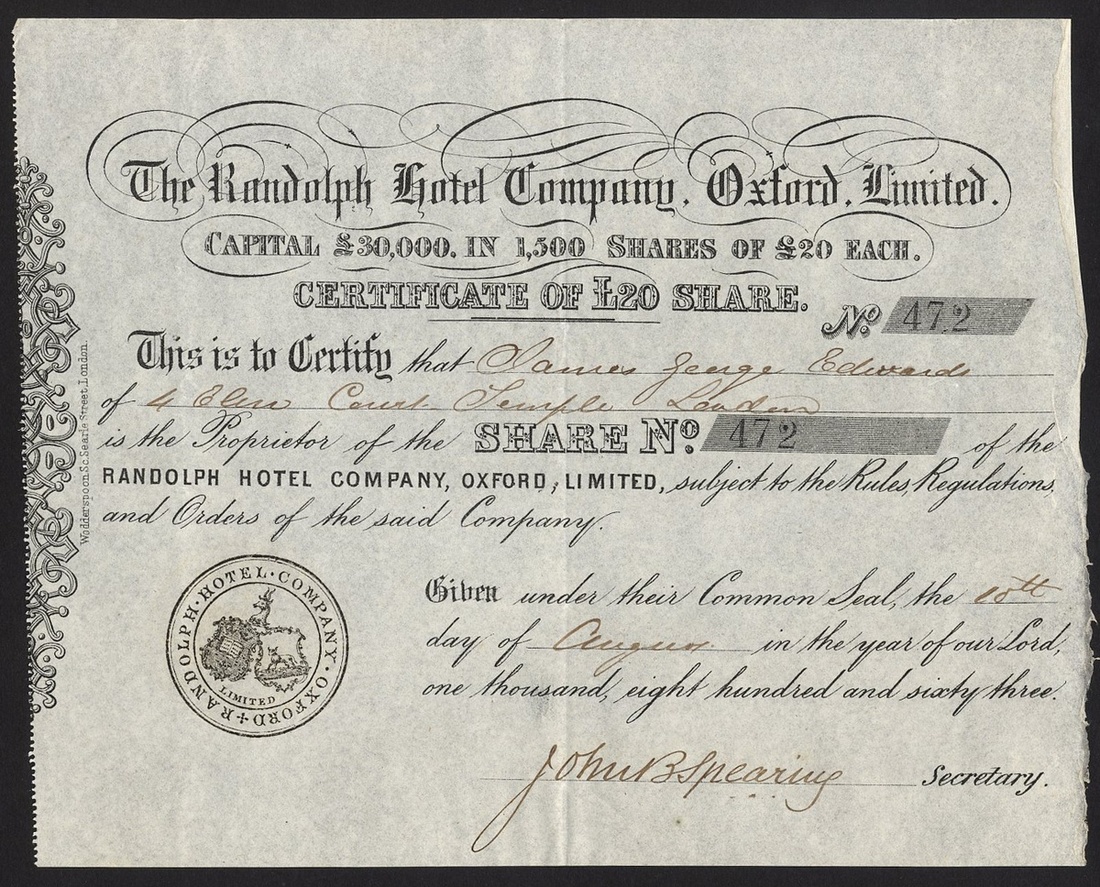 The Randolph Hotel Company, Oxford, Limited.
CAPITAL £30,000. IN 1,500 SHARES OF £20 EACH.
CERTIFICATE OF £20 SHARE.
No. 472
This is to Certify that James George Edwards
of 4 Elm Court Temple London
is the Proprietor of the SHARE No. 472 of the
RANDOLPH HOTEL COMPANY, OXFORD, LIMITED, subject to the Rules, Regulations,
and Orders of the said Company.
Given under their Common Seal, the 10th
day of August in the year of our Lord,
one thousand, eight hundred and sixty three.
John B Spearing Secretary.
RANDOLPH · HOTEL · COMPANY · OXFORD
LIMITED
Wodderspoon. Searle Street, London.